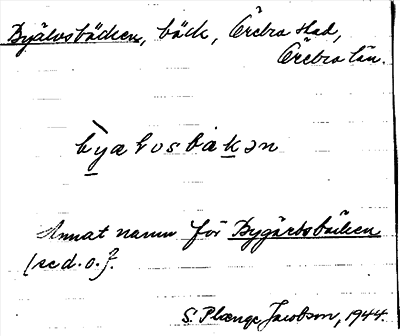 Byälvsbäcken, bäck, Örebro stad,
Örebro län.
Annat namn för Bygärdsbäcken
(se d. o.).
S. Plænge Jacobson, 1944.